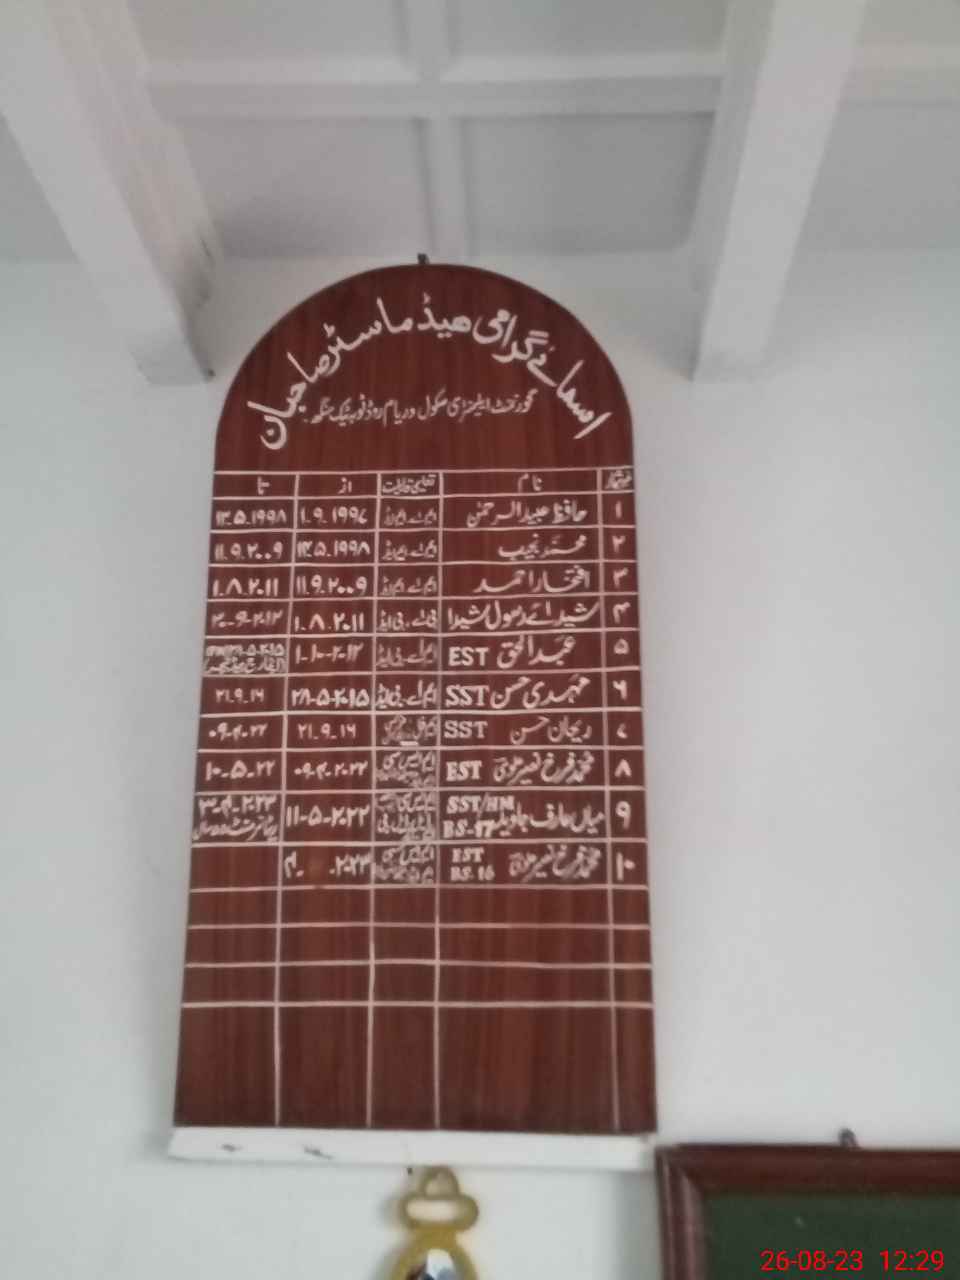 اسمائے گرامی ھیڈ ماسٹر صاحبان
گورنمنٹ ایلیمنٹری سکول وریام روڈ ٹوبہ ٹیک سنگھ
نمبر شمار نام تعلیمی قابلیت از تا
۱ حافظ عبیدالرحمٰن ایم اے، ایم ایڈ ۱.۹.۱۹۹۷ ۱۳.۵.۱۹۹۸
۲ محمد نجیب ایم اے، ایم ایڈ ۱۳.۵.۱۹۹۸ ۱۱.۹.۲۰۰۹
۳ افتخار احمد ایم اے، ایم ایڈ ۱۱.۹.۲۰۰۹ ۱.۸.۲۰۱۱
۴ شیدائے رسول شیدا بی اے، بی ایڈ ۱.۸.۲۰۱۱
۵ عبدالحق EST ایم اے، بی ایڈ ۱-۱۰-۲۰۱۲
۶ مہدی حسن SST ایم اے، بی ایڈ ۲۸-۵-۲۰۱۵ ۲۱.۹.۱۶
۷ ریحان حسن SST ۲۱.۹.۱۶ ۰۹-۴-۲۲
۸ محمد فرخ نصیر EST ایم ایس سی ۰۹-۴-۲۰۲۲ ۱۰.۵.۲۲
۹ میاں عارف جاوید SST/HM BS-17 ۱۱-۵-۲۰۲۲ ۳-۴-۲۰۲۳
۱۰ محمد فرخ نصیر EST BS.16 ایم ایس سی ۴- -۲۰۲۳
26-08-23 12:29